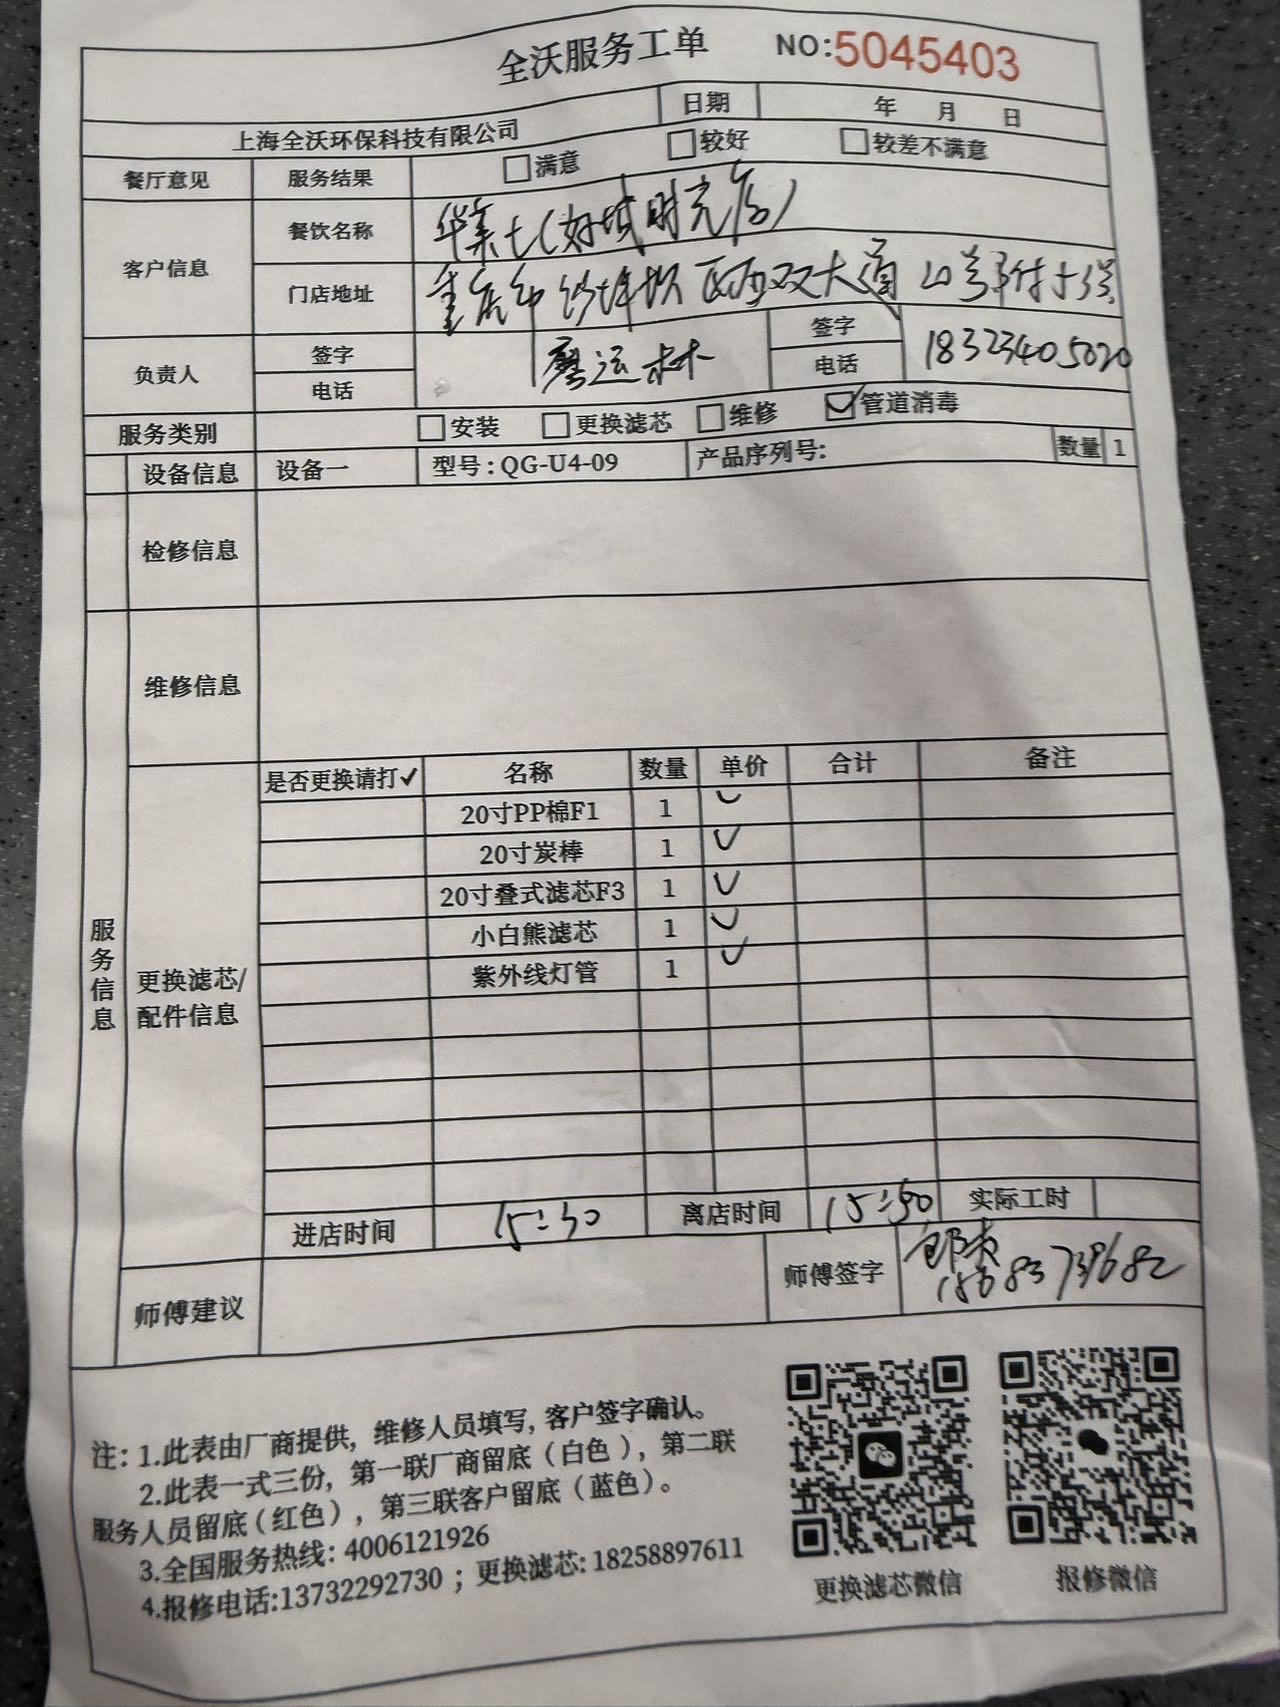 全沃服务工单 NO:5045403
上海全沃环保科技有限公司 日期 年 月 日
餐厅意见 服务结果 满意 较好 较差不满意
客户信息 餐饮名称
门店地址 重庆市沙坪坝区西双大道
负责人 签字 签字
电话 电话 18323405020
服务类别 安装 更换滤芯 维修 管道消毒
设备信息 设备一 型号:QG-U4-09 产品序列号: 数量 1
检修信息
维修信息
服务信息
更换滤芯/
配件信息
是否更换请打✓ 名称 数量 单价 合计 备注
20寸PP棉F1 1 ✓
20寸炭棒 1 ✓
20寸叠式滤芯F3 1 ✓
小白熊滤芯 1 ✓
紫外线灯管 1 ✓
进店时间 15:30 离店时间 15:50 实际工时
师傅建议 师傅签字
注: 1.此表由厂商提供, 维修人员填写, 客户签字确认。
2.此表一式三份, 第一联厂商留底（白色）, 第二联
服务人员留底(红色), 第三联客户留底（蓝色）。
3.全国服务热线: 4006121926
4.报修电话:13732292730 ; 更换滤芯: 18258897611
更换滤芯微信 报修微信